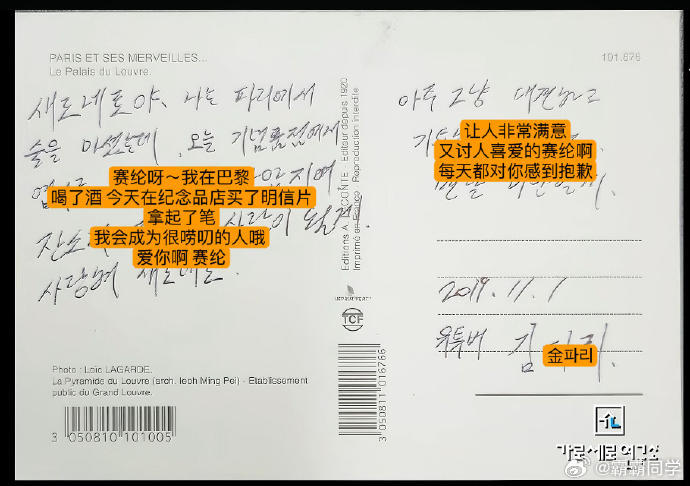 PARIS ET SES MERVEILLES...
Le Palais du Louvre.
101.676
새로네로야, 나는 파리에서
술을 마셨는데 오늘 기념품점에서
赛纶呀～我在巴黎
喝了酒 今天在纪念品店买了明信片
拿起了笔
我会成为很唠叨的人哦
爱你啊 赛纶
사랑해 새로네로.
Photo : Loïc LAGARDE.
La Pyramide du Louvre (arch. Ieoh Ming Pei) - Etablissement
public du Grand Louvre.
3 050810 101005
Editions A. LECONTE - Editeur depuis 1920
Imprimé en France - Reproduction interdite
TCF
3 050811 016766
아주 그냥 대견하고
让人非常满意
又讨人喜爱的赛纶啊
每天都对你感到抱歉
맨날 미안할게.
2019. 11. 1
유튜버 김파리.
金파리
가로세로연구소
@霸霸同学